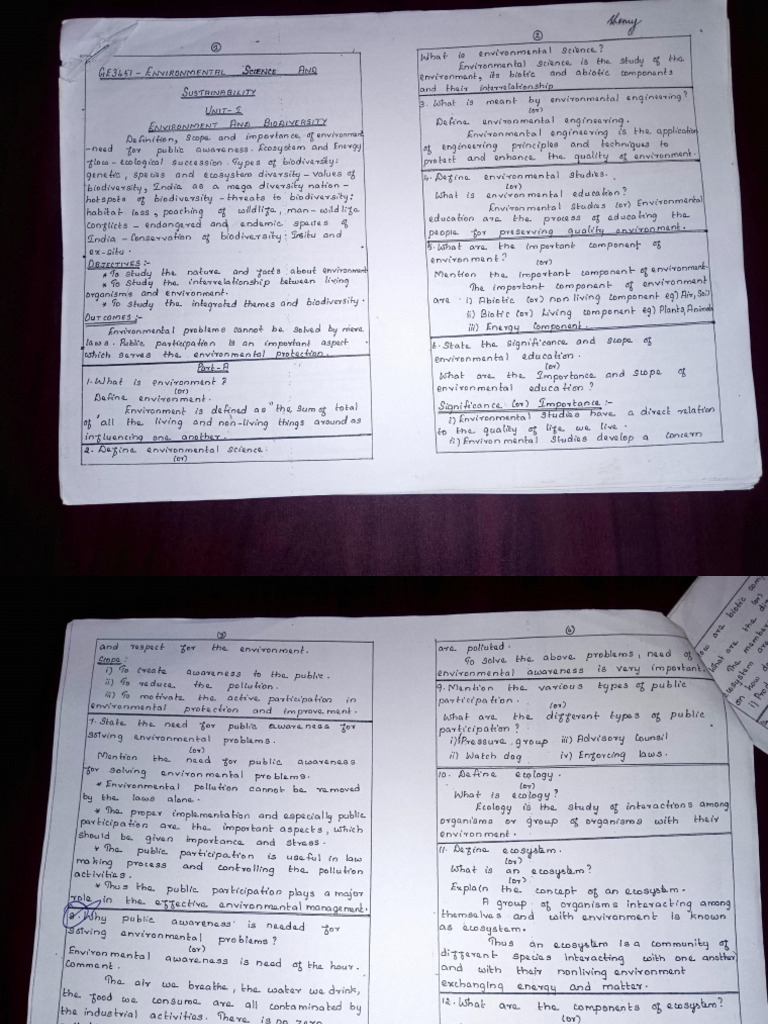 ①
GE3451 - ENVIRONMENTAL SCIENCE AND
SUSTAINABILITY
UNIT-I
ENVIRONMENT AND BIODIVERSITY
Definition, scope and importance of environment
-need for public awareness. Ecosystem and Energy
flow - ecological succession. Types of biodiversity:
genetic, species and ecosystem diversity - values of
biodiversity, India as a mega diversity nation -
hotspots of biodiversity - threats to biodiversity:
habitat loss, poaching of wildlife, man - wildlife
conflicts - endangered and endemic species of
India - Conservation of biodiversity: Insitu and
ex-situ.
OBJECTIVES:-
* To study the nature and facts about environment
* To study the interrelationship between living
organisms and environment.
* To study the integrated themes and biodiversity.
OUTCOMES:-
Environmental problems cannot be solved by mere
laws. Public participation is an important aspect
which serves the environmental protection.
Part-A
1. What is environment?
(or)
Define environment.
Environment is defined as "the sum of total
of all the living and non-living things around as
influencing one another.
2. Define environmental science.
(or)
②
What is environmental science?
Environmental science is the study of the
environment, its biotic and abiotic components
and their interrelationship
3. What is meant by environmental engineering?
(or)
Define environmental engineering.
Environmental engineering is the application
of engineering principles and techniques to
protect and enhance the quality of environment.
4. Define environmental studies.
(or)
What is environmental education?
Environmental studies (or) Environmental
education are the process of educating the
people for preserving quality environment.
5. What are the important component of
environment?
(or)
Mention the important component of environment.
The important component of environment
are i) Abiotic (or) non living component eg) Air, Soil
ii) Biotic (or) Living component eg) Plants, Animals
iii) Energy component.
6. State the significance and scope of
environmental education.
(or)
What are the Importance and scope of
environmental education?
Significance (or) Importance:-
i) Environmental studies have a direct relation
to the quality of life we live.
ii) Environmental studies develop a concern
③
and respect for the environment.
Scope:
i) To create awareness to the public.
ii) To reduce the pollution.
iii) To motivate the active participation in
environmental protection and improvement.
7. State the need for public awareness for
solving environmental problems.
(or)
Mention the need for public awareness
for solving environmental problems.
* Environmental pollution cannot be removed
by the laws alone.
* The proper implementation and especially public
participation are the important aspects, which
should be given importance and stress.
* The public participation is useful in law
making process and controlling the pollution
activities.
* Thus the public participation plays a major
role in the effective environmental management.
8. Why public awareness is needed for
solving environmental problems?
(or)
Environmental awareness is need of the hour.
Comment.
The air we breathe, the water we drink,
the food we consume are all contaminated by
the industrial activities. There is no zero
④
are polluted.
To solve the above problems, need of
environmental awareness is very important.
9. Mention the various types of public
participation.
(or)
What are the different types of public
participation?
i) Pressure group iii) Advisory Council
ii) Watch dog iv) Enforcing laws.
10. Define ecology.
(or)
What is ecology?
Ecology is the study of interactions among
organisms or group of organisms with their
environment.
11. Define ecosystem.
(or)
What is an ecosystem?
(or)
Explain the concept of an ecosystem.
A group of organisms interacting among
themselves and with environment is known
as ecosystem.
Thus an ecosystem is a community of
different species interacting with one another
and with their nonliving environment
exchanging energy and matter.
12. What are the components of ecosystem?
(or)
How are biotic
What are the
The member
ecosystem are
on how
i) Prod